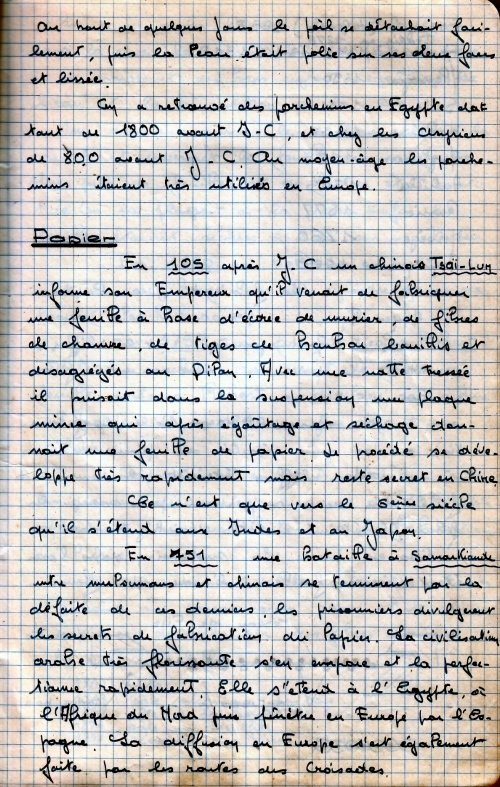 Au bout de quelques jours le poil se détachait faci-
lement, puis la Peau était polie sur ses deux faces
et lissée.
On a retrouvé des parchemins en Egypte dat
tant de 1800 avant J-C, et chez les Assyriens
de 800 avant J-C. Au moyen-âge les parche-
mins étaient très utilisés en Europe.
Papier
En 105 après J-C un chinois Tsaï-Lun
informe son Empereur qu'il venait de fabriquer
une feuille à base d'écorce de murier, de fibres
de chanvre, de tiges de Bambou bouillis et
disagrégés au Pilon. Avec une natte tressée
il puisait dans la suspension une plaque
mince qui après égoûtage et séchage don-
nait une feuille de papier. Le procédé se déve-
loppe très rapidement mais reste secret en Chine.
Ce n'est que vers le 5ème siècle
qu'il s'étend aux Indes et au Japon.
En 751 une Bataille à Samarkande
entre musulmans et chinois se terminent par la
défaite de ces derniers, les prisonniers divulguent
les secrets de fabrication du Papier. La civilisation
arabe très florissante s'en empare et la perfec-
tionne rapidement. Elle s'étend à l'Egypte, à
l'Afrique du Nord puis pénètre en Europe par l'Es-
pagne. La diffusion en Europe s'est également
faite par les routes des Croisades.